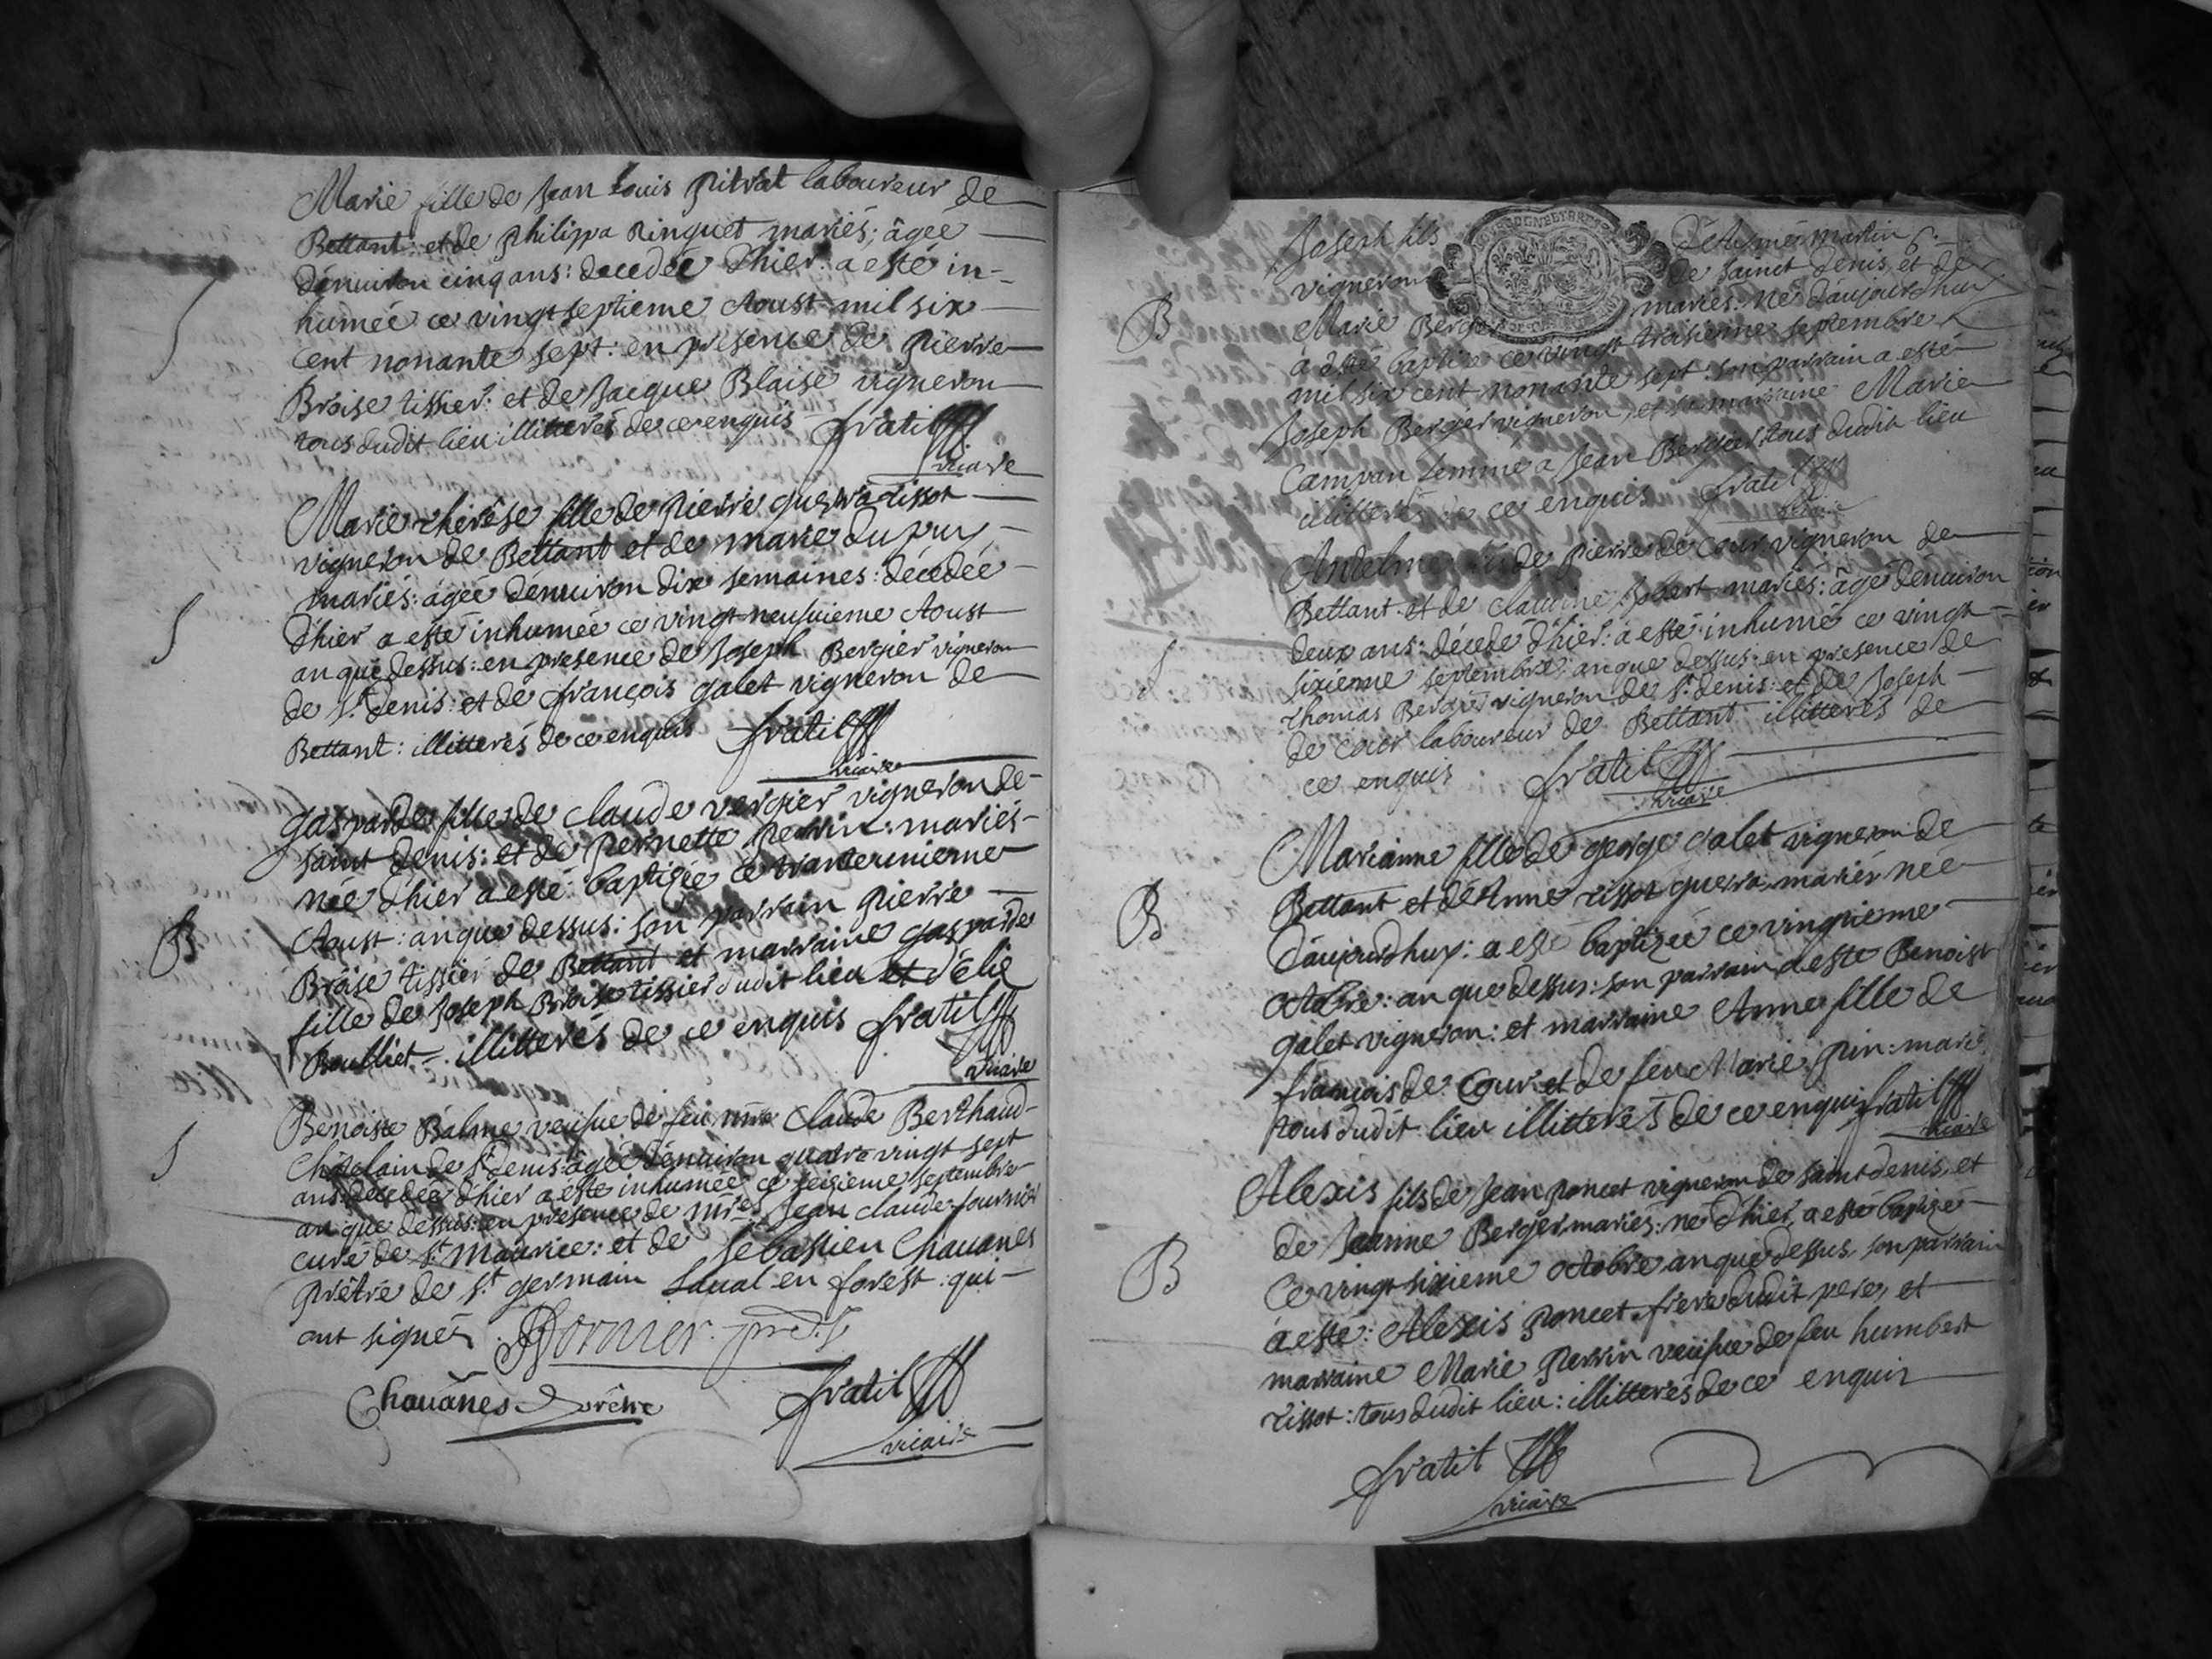 Marie fille de Jean Louis Pitrat laboureur de
Bettant: et de Philippa Ringuet mariés; âgée
d'enuiron cinq ans: decedée d'hier: a esté in-
humée ce vingt septieme Aoust mil six
cent nonante sept: en presence de Pierre
Broise tissier: et de Jacque Blaise vigneron
tous dudit lieu illitterés de ce enquis fratil
vicaire
S
Marie therèse fille de Pierre guerra tissot
vigneron de Bettant et de marie du puy
mariés: agée d'enuiron dix semaines: décedée
d'hier a esté inhumée ce vingt neufuieme Aoust
an que dessus: en presence de Joseph Bergier vigneron
de St denis: et de françois galet vigneron de
Bettant: illitterés de ce enquis fratil
vicaire
S
gasparde fille de Claude vergier vigneron de
saint denis: et de Pernette Perrin: mariés
née d'hier a esté: baptisée ce tranteunieme
Aoust: an que dessus: son parrain Pierre
Broise tissier de Bettant et marraine gasparde
fille de Joseph Broise tissier dudit lieu et d'élie
Boulliet illitterés de ce enquis fratil
vicaire
B
Benoiste Balme veufue de feu mre Claude Berthaud
Châtelain de St denis: âgée d'enuiron quatre vingt sept
ans decedée d'hier a esté inhumée ce seizieme septembre
an que dessus: en presence de mres Jean claude fournier
curé de St maurice: et de Sebastien Chauanes
prêtre de St germain Laual en forest: qui
ont signés fornier
Chauânes prêtre fratil
vicaire
S
Joseph fils d'Aimé martin
vigneron de sainct denis, et de
Marie Bergier mariés: né d'aujourdhui
a esté baptisé ce vingt troisieme septembre
mil six cent nonante sept: son parrain a esté
Joseph Bergier vigneron, et sa marraine Marie
Campan femme a Jean Bergier tous dudit lieu
illitterés de ce enquis fratil
vicaire
B
Antelme fils de Pierre de Cour vigneron de
Bettant et de claudine mariés: âgé d'enuiron
deux ans: décedé d'hier: a esté inhumé ce vingt
sixieme septembre: an que dessus: en presence de
thomas Bergier vigneron de St denis: et de Joseph
de cour laboureur de Bettant illitterés de
ce enquis fratil
vicaire
S
Marianne fille de george galet vigneron de
Bettant et d'Anne tissot guerra mariés née
d'aujourdhuy: a esté baptizée ce vingtieme
octobre: an que dessus: son parrain a esté Benoist
galet vigneron: et marraine Anne fille de
françois de Cour et de feu Marie Pin: mariés
tous dudit lieu illitterés de ce enquis fratil
vicaire
B
Alexis fils de Jean Poncet vigneron de saint denis, et
de Jeanne Berger mariés: né d'hier a esté baptizé
Ce vingt sixieme octobre an que dessus, son parrain
a esté: Alexis Poncet frere dudit pere, et
marraine Marie Perrin veufue de feu humbert
tissot: tous dudit lieu: illitterés de ce enquis
fratil
vicaire
B